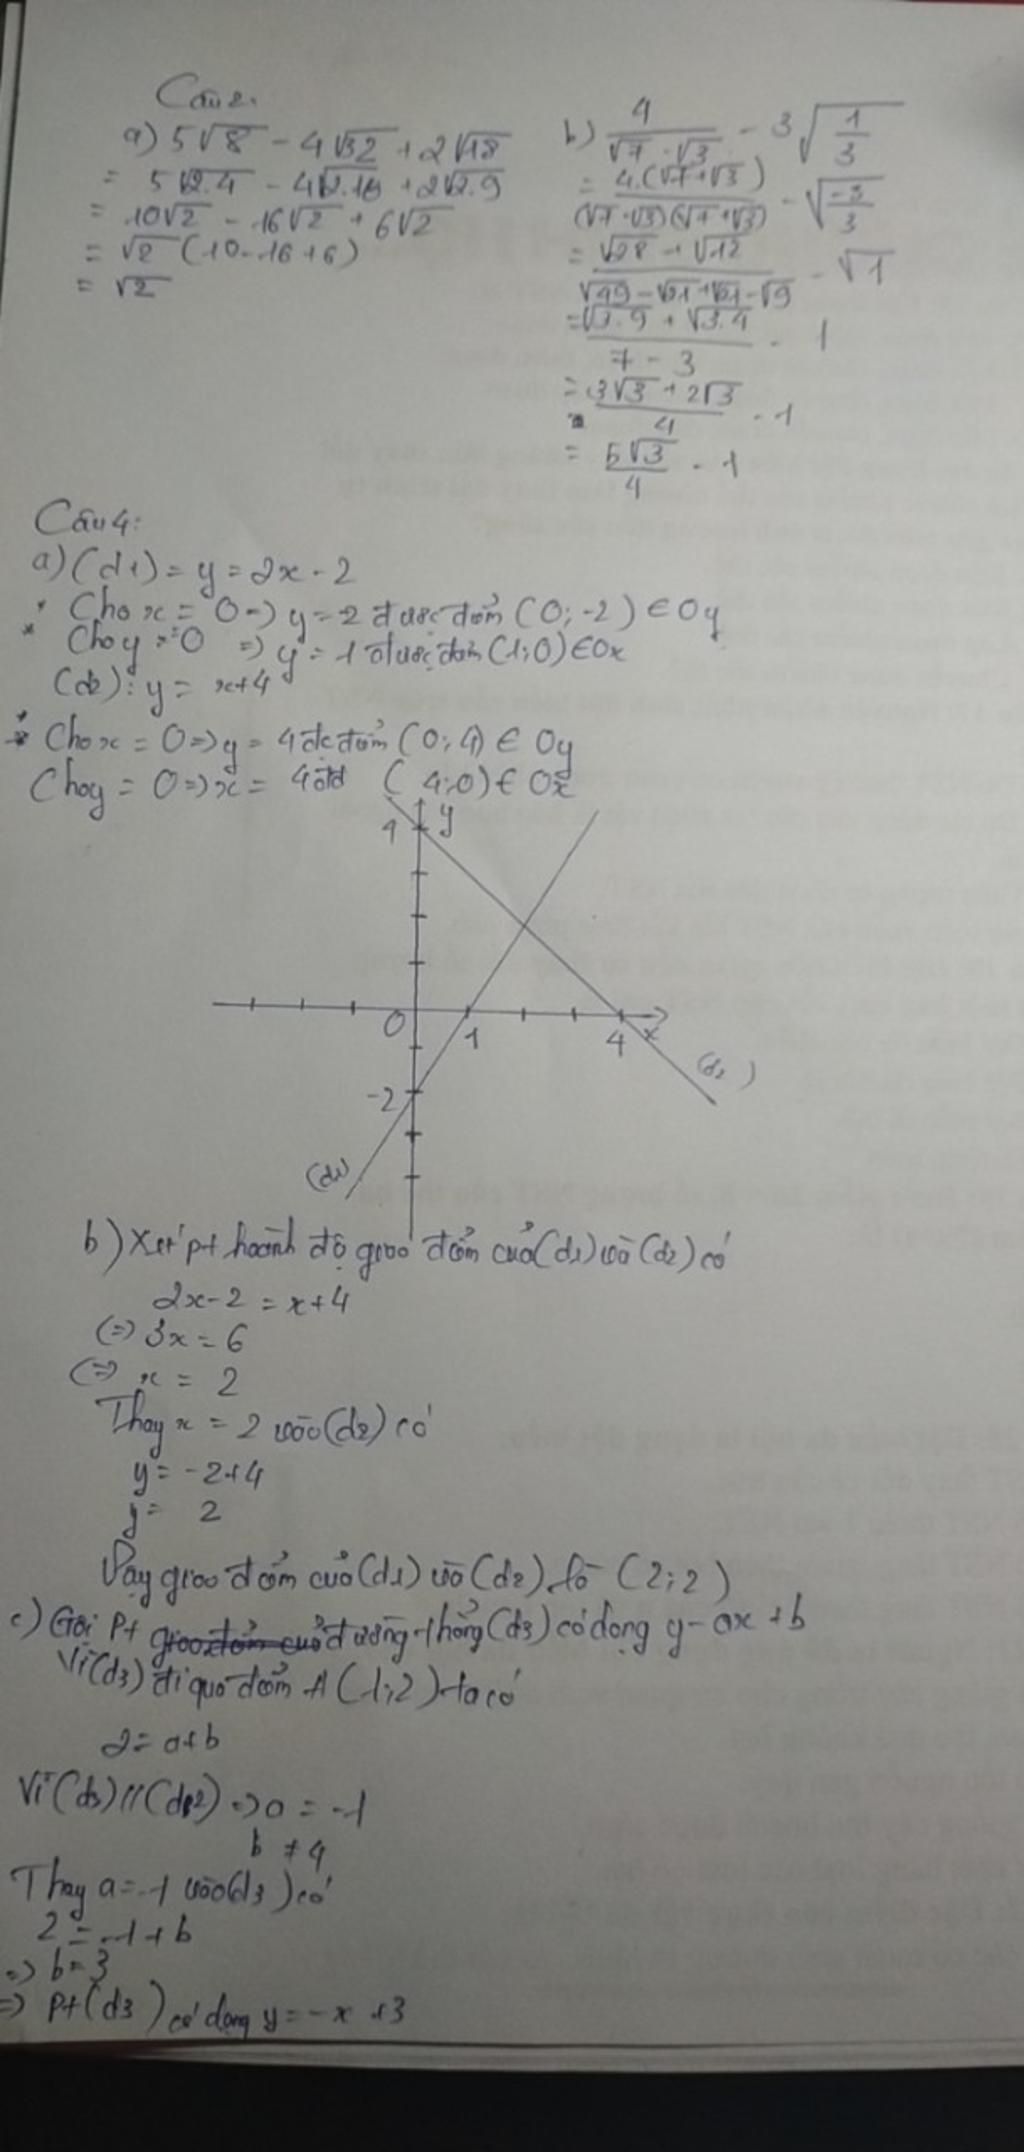 Câu 2.
a) 5√8 - 4√32 + 2√18
= 5√2.4 - 4√2.16 + 2√2.9
= 10√2 - 16√2 + 6√2
= √2 (10-16+6)
= √2
b) 4/(√7 - √3) - 3√(1/3)
= 4.(√7+√3)/((√7-√3)(√7+√3)) - √(-3/3)
= (√28 + √12)/(√49-√21+√21-√9) - √1
= (√3.9 + √3.4)/(7-3) - 1
= (3√3 + 2√3)/4 - 1
= 5√3/4 - 1
Câu 4:
a) (d1) = y = 2x - 2
* Cho x = 0 => y = -2 được điểm (0; -2) ∈ Oy
* Cho y = 0 => y = 1 được điểm (1;0) ∈ Ox
(d2): y = x+4
* Cho x = 0 => y = 4 đc điểm (0; 4) ∈ Oy
Cho y = 0 => x = 4 (4;0) ∈ Ox
4 y
0 1 4 x
(d2)
-2
(d1)
b) Xét pt hoành độ giao điểm của (d1) và (d2) có
2x-2 = x+4
(=) 3x = 6
(=) x = 2
Thay x = 2 vào (d2) có
y = -2+4
y = 2
Vậy giao điểm của (d1) và (d2) là (2;2)
c) Gọi pt giao điểm của đường thẳng (d3) có dạng y = ax + b
Vì (d3) đi qua điểm A (1;2) ta có
2 = a+b
Vì (d3) // (d2) => a = -1
b ≠ 4
Thay a = -1 vào (d3) có
2 = -1 + b
=> b = 3
=> pt (d3) có dạng y = -x +3